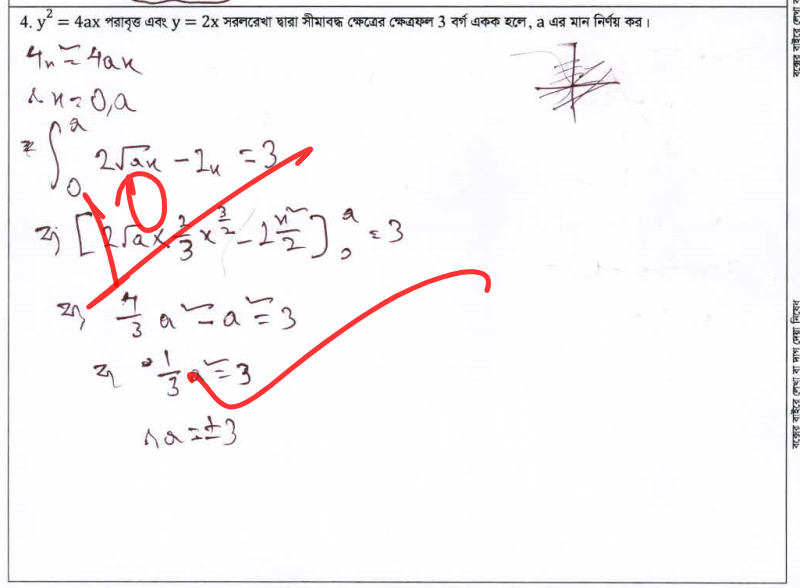 4. y² = 4ax পরাবৃত্ত এবং y = 2x সরলরেখা দ্বারা সীমাবদ্ধ ক্ষেত্রের ক্ষেত্রফল 3 বর্গ একক হলে, a এর মান নির্ণয় কর।
4x² = 4ax
∴ x = 0, a
⇒ ∫₀ᵃ 2√ax - 2x = 3
⇒ [2√a × 2/3 x^(3/2) - 2 x²/2]₀ᵃ = 3
⇒ 4/3 a² - a² = 3
⇒ 1/3 a² = 3
∴ a = ±3
10
বক্সের বাইরে লেখা বা দাগ দেয়া নিষেধ